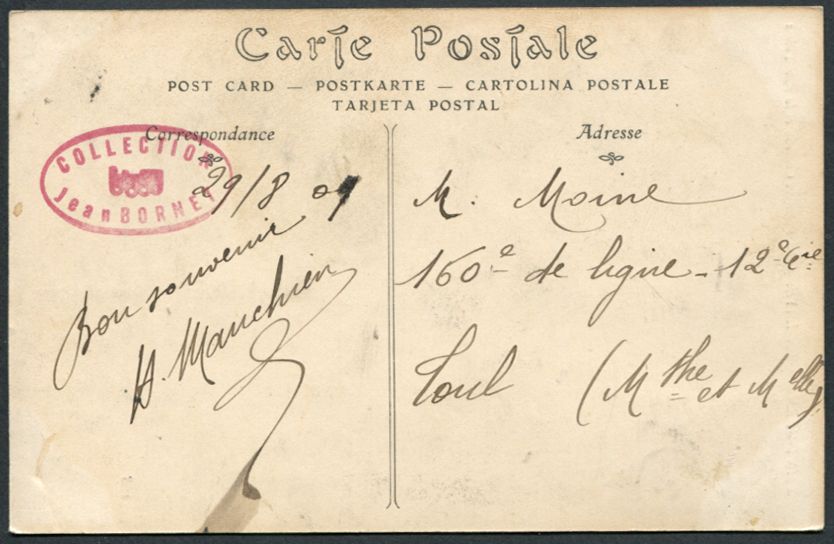 Carte Postale
POST CARD — POSTKARTE — CARTOLINA POSTALE
TARJETA POSTAL
Correspondance
COLLECTION
Jean BORNET
29/8 09
Bon souvenir
H. Manchien
Adresse
M. Moine
160e de ligne - 12e Cie
Toul (Mthe et Melle)